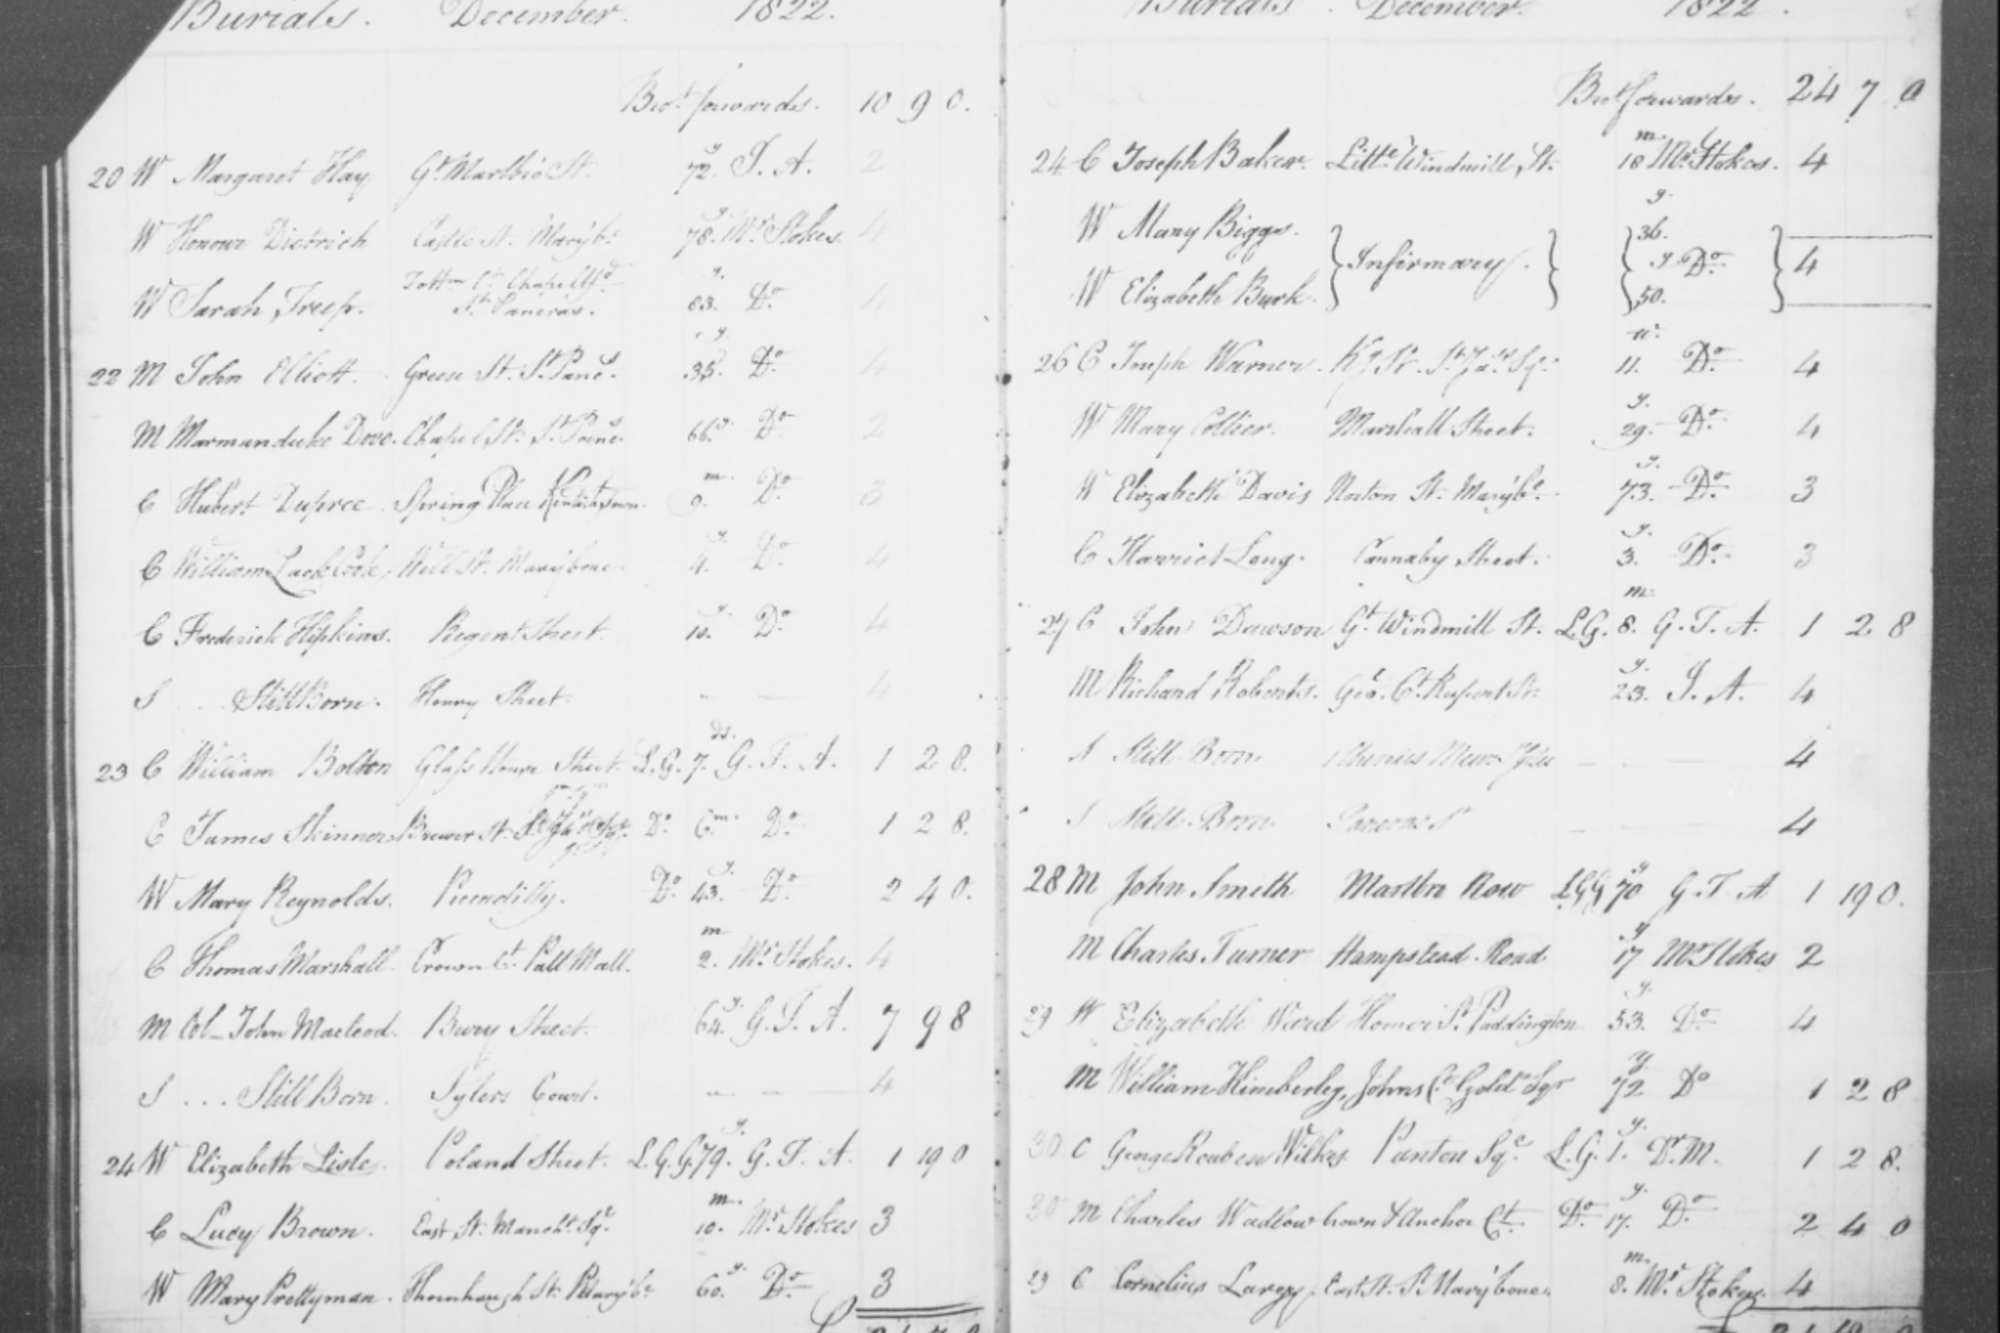 Burials. December. 1822.
Brot forwards. 10 9 0.
20 W Margaret Hay Gt. Marlbro St. 72 y S. A. 2
W Honour Dietrich Castle St. Maryb. 78 y Mr. Stokes. 4
W Sarah Treep. Tottm. Ct. Chapel Yd. St. Pancras. 83. y Do 4
22 M John Elliott. Greese St. St. Panc. 35. y Do 4
M Marmanduke Dove. Chapel St. St. Panc. 66. y Do 2
C Hubert Dupree. Spring Place Kentish Town. 9. m Do 3
C William Lack Cook, Well St. Marybone. 4. y Do 4
C Frederick Hipkins. Regent Street. 10. y Do 4
S ... Still Born. Henry Street. – — 4
23 C William Bolton Glass House Street L.G. 7. ds. G. T. A. 1 2 8.
C James Skinner Brewer St. Do 6 m. Do 1 2 8.
W Mary Reynolds. Piccadilly. Do 43. y Do 2 4 0.
C Thomas Marshall. Crown Ct. Pall Mall. 2. m Mr. Stokes. 4
M Col John Macleod. Bury Street. 64. y G. T. A. 7 9 8
S ... Still Born. Tylers Court. – — 4
24 W Elizabeth Lisle. Poland Street. L.G.G. 79. y G. T. A. 1 19 0
C Lucy Brown. East St. Manchr. Sqe. 10. m. Mr. Stokes 3
W Mary Prettyman. Thornhaugh St. 60. y Do 3
Burials. December. 1822.
Brot forwards. 24 7 0
24 C Joseph Baker. Littl. Windmill St. 18 m. Mr. Stokes. 4
W Mary Biggs. Infirmary. 36. y Do 4
W Elizabeth Burk. 50. y
26 C Joseph Warner. Kg St. St. Jas. Sqe. 11. Do 4
W Mary Collier. Marshall Street. 29. y Do 4
W Elizabeth Davis Norton St. Maryb. 73. y Do 3
C Harriet Long. Carnaby Street. 3. y Do 3
27 C John Dawson Gt. Windmill St. L.G. 8. m G. T. A. 1 2 8
M Richard Roberts. Geo. Ct. Rupert St. 23. y S. A. 4
S Still Born Mews – — 4
S Still Born – — 4
28 M John Smith Marlbro Row L.G.G 70 y G T A 1 19 0.
M Charles Turner Hampstead Road 17 y Mr Stokes 2
29 W Elizabeth Ward Homer St. Paddington. 53. y Do 4
M William Kimberley, Johns Ct. Gold. Sqr 72 y Do 1 2 8
30 C George Reuben Wilkes Panton Sqe. L.G. 1. y Dr. M. 1 2 8.
30 M Charles Wadlow Crown & Anchor Ct. Do 17. y Do 2 4 0
29 C Cornelius East St. St. Marybone. 8. m. Mr. Stokes. 4